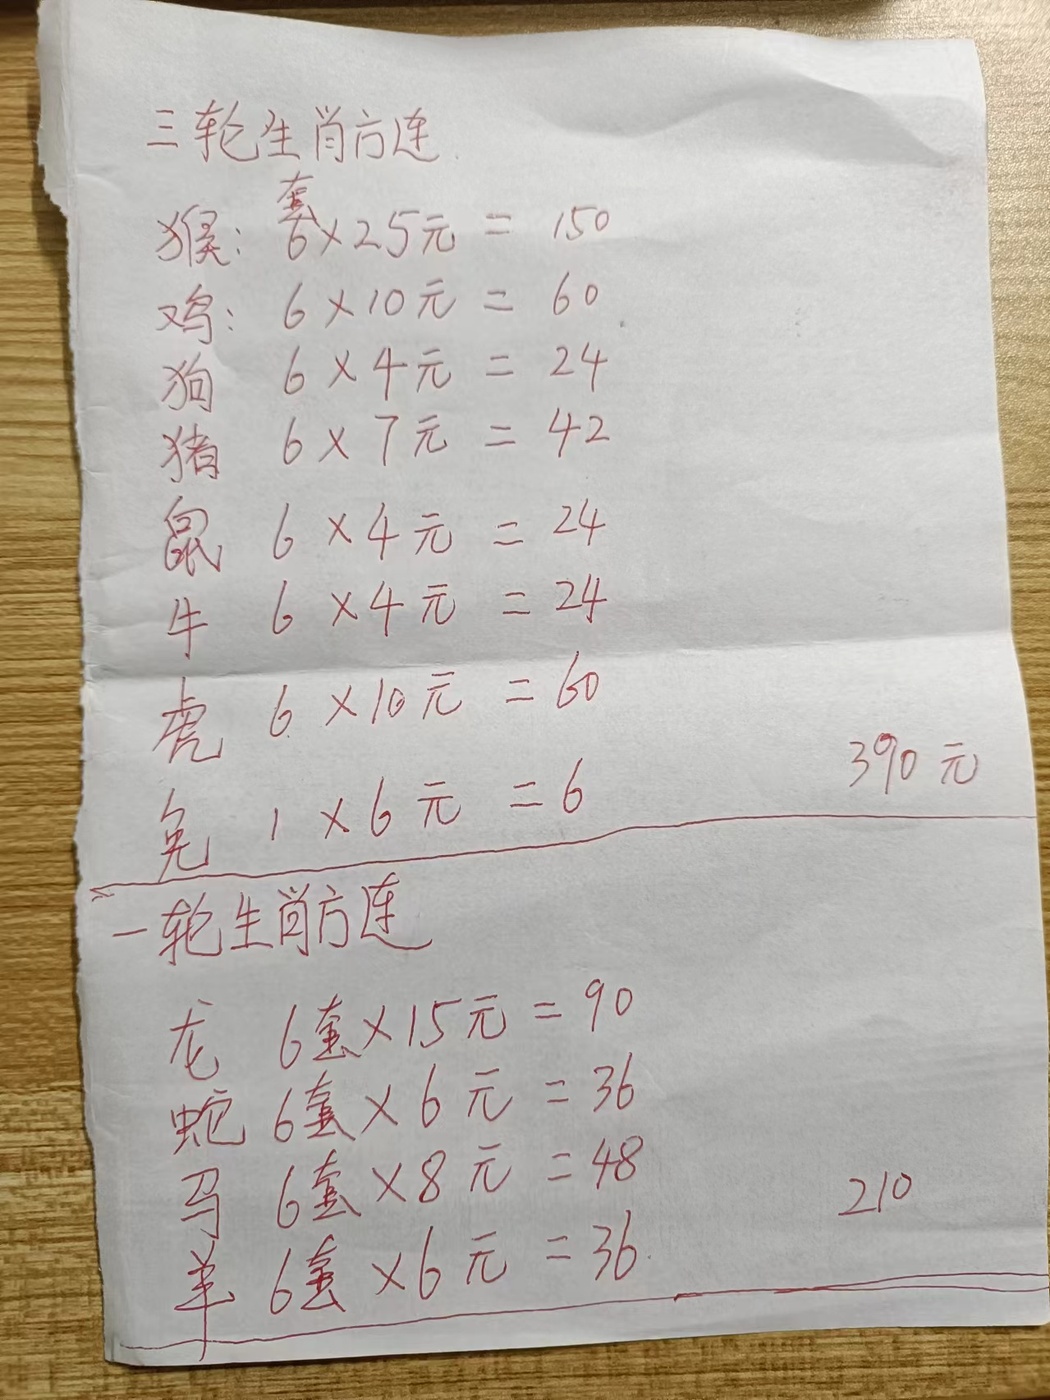 三轮生肖方连
猴: 6套×25元 = 150
鸡: 6×10元 = 60
狗 6×4元 = 24
猪 6×7元 = 42
鼠 6×4元 = 24
牛 6×4元 = 24
虎 6×10元 = 60
兔 1×6元 = 6
390元
一轮生肖方连
龙 6套×15元 = 90
蛇 6套×6元 = 36
马 6套×8元 = 48
羊 6套×6元 = 36
210